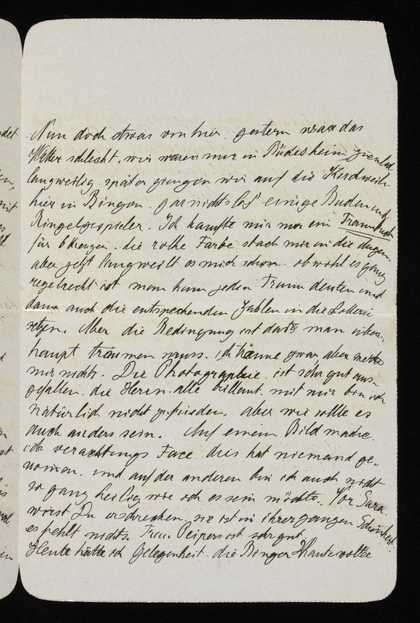 Nun doch etwas von hier. gestern war das
Wetter schlecht. wir waren nur in Büdesheim ziemlich
langweilig. später giengen wir auf die Kirchweih
hier in Bingen. gar nichts los einige Buden und
Ringelgespieler. Ich kaufte mir nur ein Traumbuch
für 6 kreuzer. die rothe Farbe stach mir in die Augen
aber jetzt langweilt es mich schon. obwohl es ganz
regelrecht ist man kann jeden Traum deuten und
dann auch die entsprechenden Zahlen in die Lotterie
setzen. Aber die Bedingung ist daß man über-
haupt träumen muss. ich träume zwar, aber merke
mir nichts. Die Photographie ist sehr gut aus-
gefallen. die Herrn alle brillant. mit mir bin ich
natürlich nicht zufrieden. aber wie sollte es
auch anders sein. Auf einem Bild mache
ich verachtungs Face. dies hat niemand ge-
nommen. und auf der anderen bin ich auch nicht
so ganz heilig wie ich es sein möchte. Vor Sara
wirst Du erschrecken, sie ist in ihrer ganzen Schönheit
es fehlt nichts. Frau Peipers ist sehr gut.
Heute hätte ich Gelegenheit die Binger Hautevollée